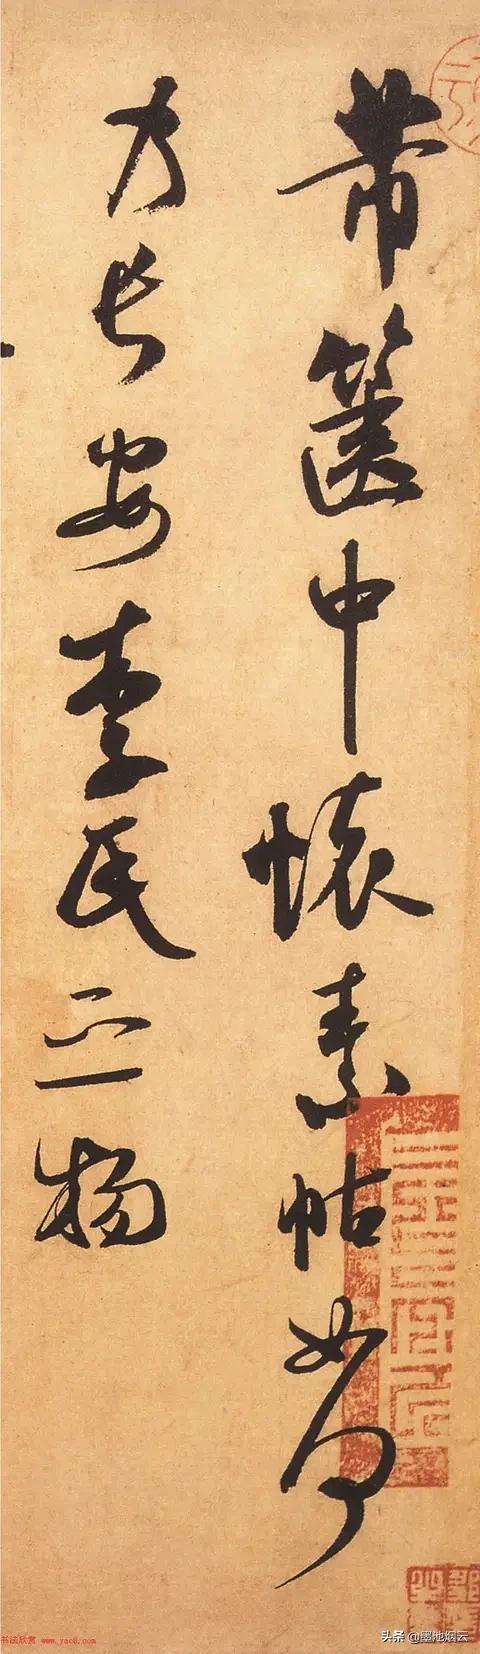 芾篋中懷素帖如何
乃長安李氏之物
书法欣赏 www.yac8.com
头条 @墨池烟云